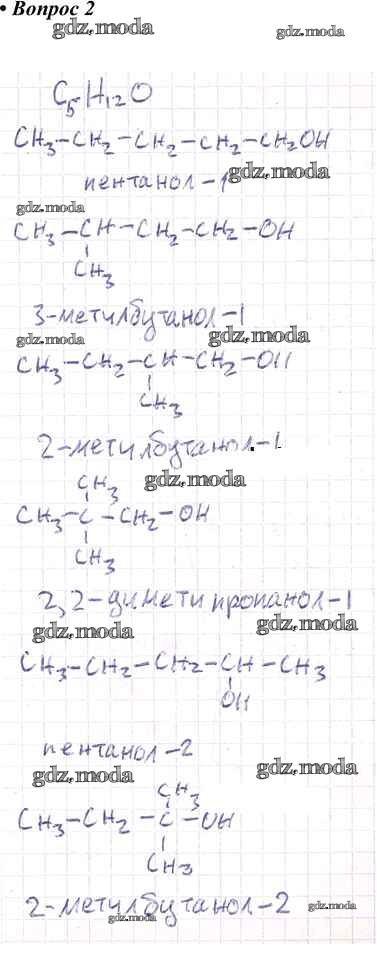 • Вопрос 2
gdz.moda gdz.moda
C₅H₁₂O
CH₃-CH₂-CH₂-CH₂-CH₂OH
пентанол-1 gdz.moda
gdz.moda
CH₃-CH-CH₂-CH₂-OH
CH₃
3-метилбутанол-1
gdz.moda gdz.moda
CH₃-CH₂-CH-CH₂-OH
CH₃
2-метилбутанол-1
CH₃ gdz.moda
CH₃-C-CH₂-OH
CH₃
2,2-димети пропанол-1
gdz.moda gdz.moda
CH₃-CH₂-CH₂-CH-CH₃
OH
пентанол-2
gdz.moda gdz.moda
CH₃
CH₃-CH₂-C-OH
CH₃
2-метилбутанол-2 gdz.moda
gdz.moda